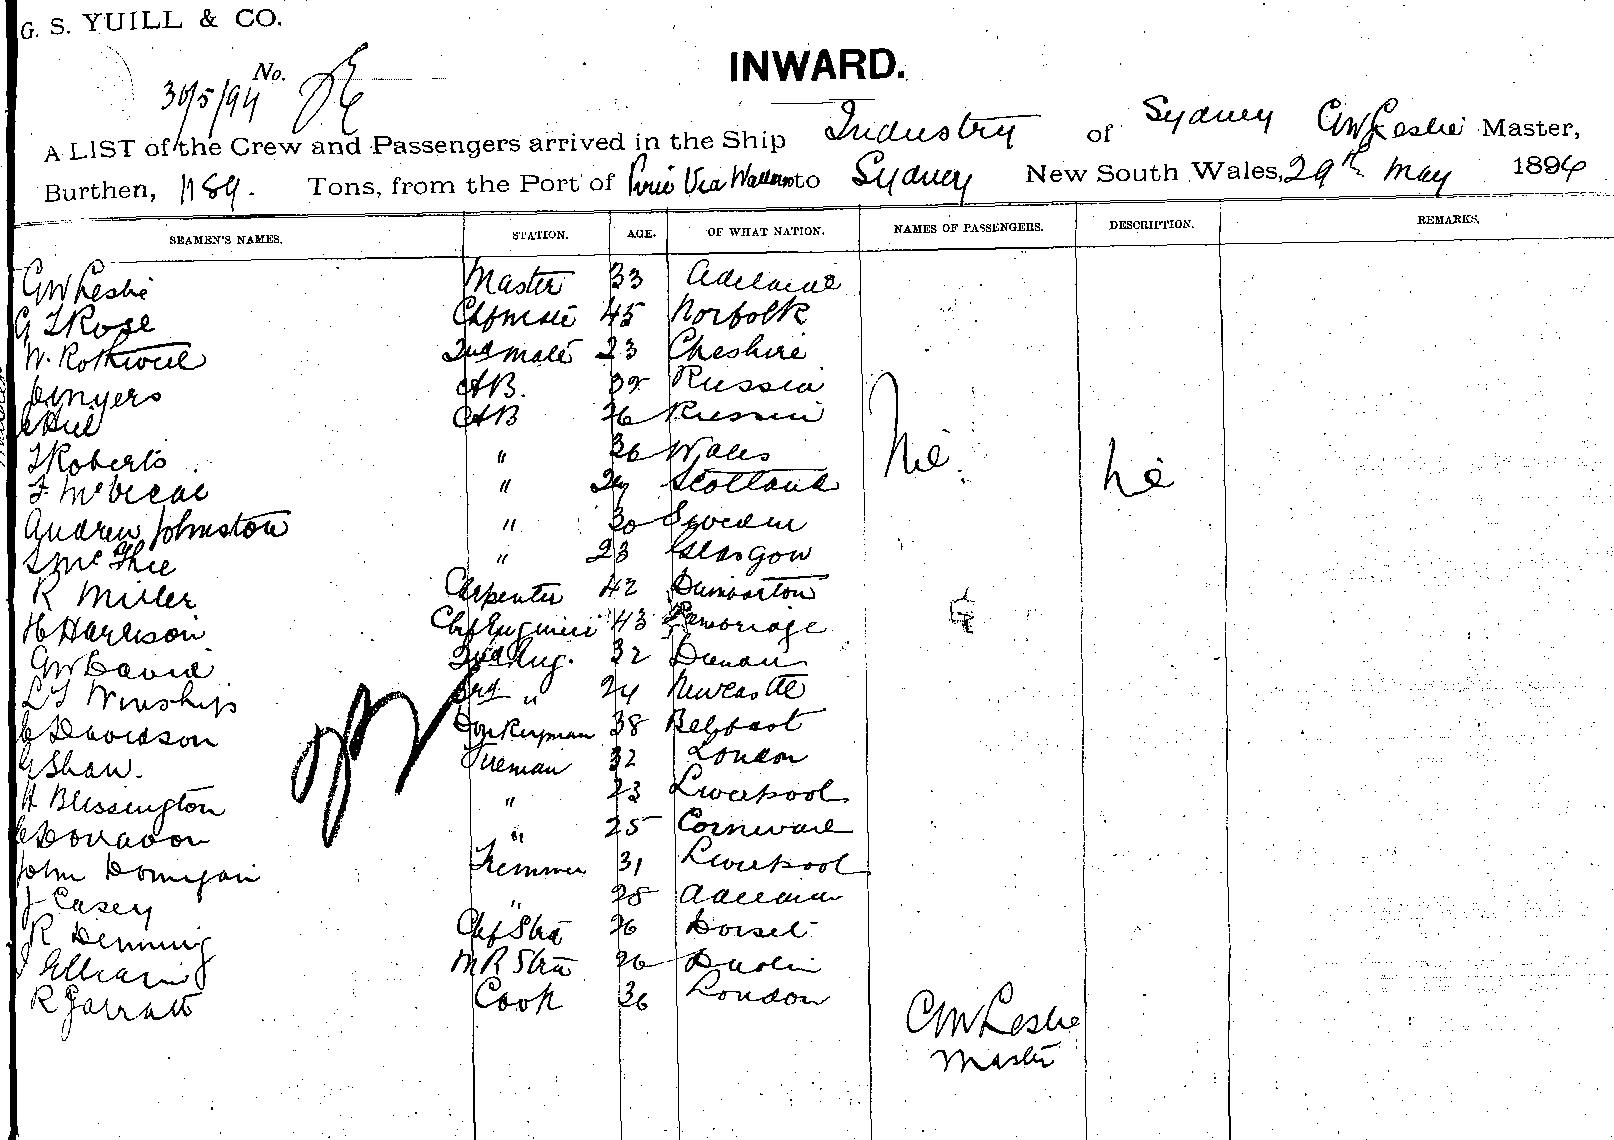 G. S. YUILL & CO.
INWARD.
No.
30/5/94
A LIST of the Crew and Passengers arrived in the Ship Industry of Sydney GW Leslie Master,
Burthen, 1189. Tons, from the Port of Pirie Via Wallaroo to Sydney New South Wales, 29th May 1894
SEAMEN'S NAMES. STATION. AGE. OF WHAT NATION. NAMES OF PASSENGERS. DESCRIPTION. REMARKS.
GW Leslie Master 33 Adelaide
G T Rose Chf mate 45 Norfolk
W. Rothwell 2nd mate 23 Cheshire
Myers AB. Russia
Hill AB 26 Russia
T Roberts " 36 Wales
F McVicar " Scotland
Andrew Johnston " 30 Sweden
McGhee " 23 Glasgow
R Miller Carpenter 42 Dumbarton
H Harrison Chf Engineer 43
GW David 2nd Eng. 32
L T Winship 3rd " 24 Newcastle
C Davidson Donkeyman 38 Belfast
G Shaw. Fireman 32 London
H Blissington " 23 Liverpool
C Donadon " 25 Cornwall
John Donigan Trimmer 31 Liverpool
J Casey " 28 Adelaide
R Denning Chf Std 26 Dorset
M R Std 26 Dublin
R Garratt Cook 36 London
Nil. Nil
GW Leslie
Master